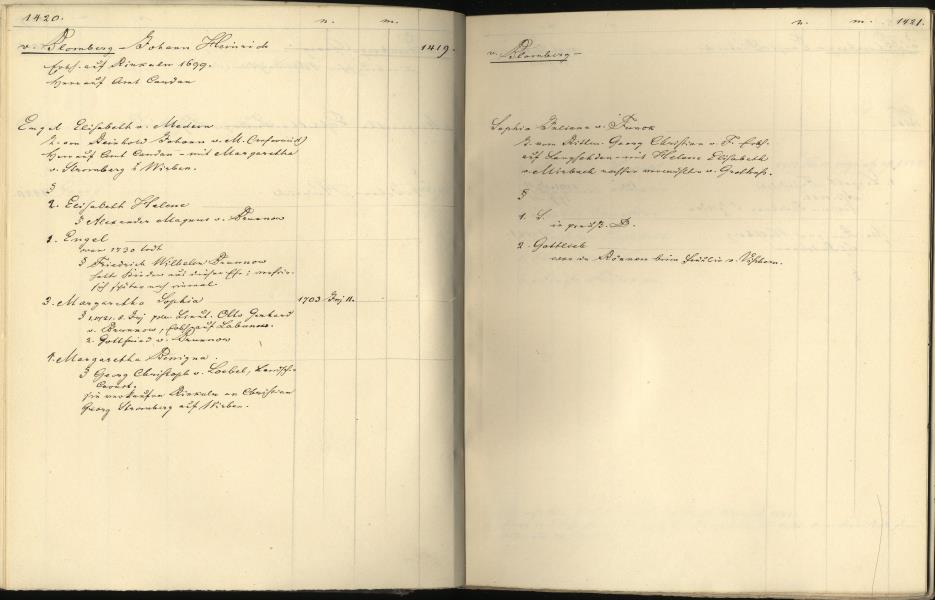 1420. n. m.
v. Blomberg Johann Heinrich 1419.
Erbh. auf Rinkuln 1699.
Herr auf Amt Candau
Engel Elisabeth v. Medem
T. von Reinhold Johann v. M.
Herr auf Amt Candau - mit Margaretha
v. Stromberg a. Wirben.
§
2. Elisabeth Helene
§ Alexander Magnus v. Brunnow
1. Engel
war 1730 todt
§ Friedrich Wilhelm Brunnow
hatte Kinder aus dieser Ehe;
sich später noch einmal
3. Margaretha Sophia 1703 Juj 11.
§ Lieut. Otto Gerhard
v. Brunnow, Erbh. auf
2. Gottfried v. Brunnow
4. Margaretha Benigna.
§ Georg Christoph v. Loebel,
Sie verkaufen Rinkuln an Christian
Georg Stromberg auf Wirben.
n. m. 1421.
v. Blomberg -
Sophia Juliana v. Funck
T. vom Rittm. Georg Christian v. F. Erbh.
auf - mit Helene Elisabeth
v. Mirbach nachher v. Grotthuß.
§
1. T.
in preuß. D.
2. Gottlieb
war in beim v.